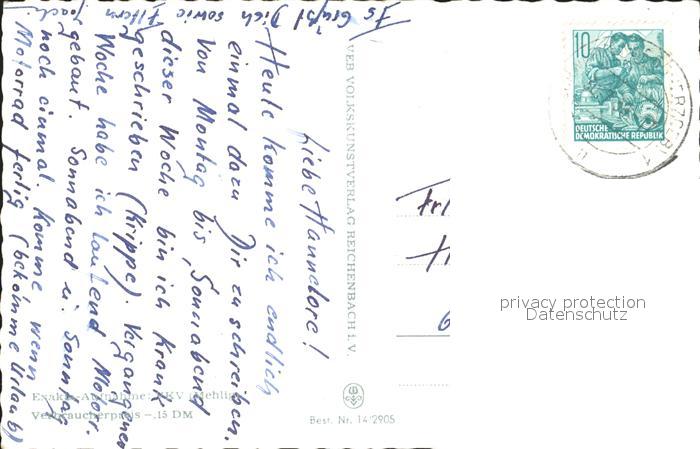 Liebe Hannelore!
Heute komme ich endlich
einmal dazu Dir zu schreiben.
Von Montag bis Sonnabend
dieser Woche bin ich krank
geschrieben (Grippe). Vergangene
Woche habe ich laufend Motorr.
gebaut. Sonnabend u. Sonntag
noch einmal. Komme wenn
Motorrad fertig (bekomme Urlaub)
Es Grüßt Dich sowie
Eltern
VEB VOLKSKUNSTVERLAG REICHENBACH i. V.
10
DEUTSCHE
DEMOKRATISCHE REPUBLIK
Frl
H
privacy protection
Datenschutz
Exakta-Aufnahme: VKV (Mehlig)
Verbraucherpreis -,15 DM
Best. Nr. 14/2905